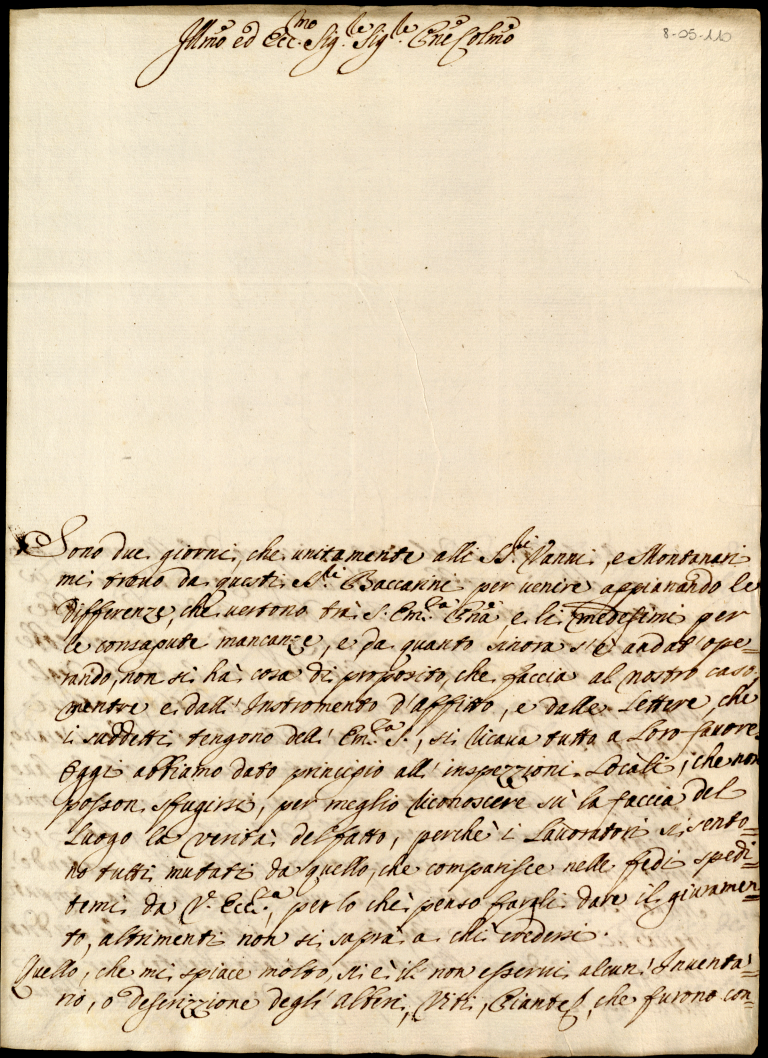 8-05-110
Illmo ed Ecc.mo Sig.re Sig.re Pñe Colmo
Sono due giorni, che unitamente alli SS.ri Vanni, e Montanari
mi trovo da questi SS.ri Baccarini per venire appianando le
differenze, che vertono trà S. Em.za Pñā, e li medesimi per
le consapute mancanze, e da quanto sinora s'è andat' ope=
rando, non si hà cosa di proposito, che faccia al nostro caso,
mentre e dall' Instromento d'affitto, e dalle Lettere, che
i suddetti tengono dell' Em.za S., si ricava tutto a Loro favore.
Oggi abbiamo dato principio all' inspezzioni Locali, che non
posson sfugirsi, per meglio riconoscere sù la faccia del
Luogo la verità del fatto, perchè i Lavoratori si sento=
no tutti mutati da quello, che comparisce nelle fedi spedi=
temi da V. Ecc.za, per lo chè penso fargli dare il giuramen=
to, altrimenti non si saprà a chi credersi.
Quello, che mi spiace molto, si è il non esservi alcun' Inventa=
rio, o descrizzione degl' Alberi, Viti, Piante, che furono con=